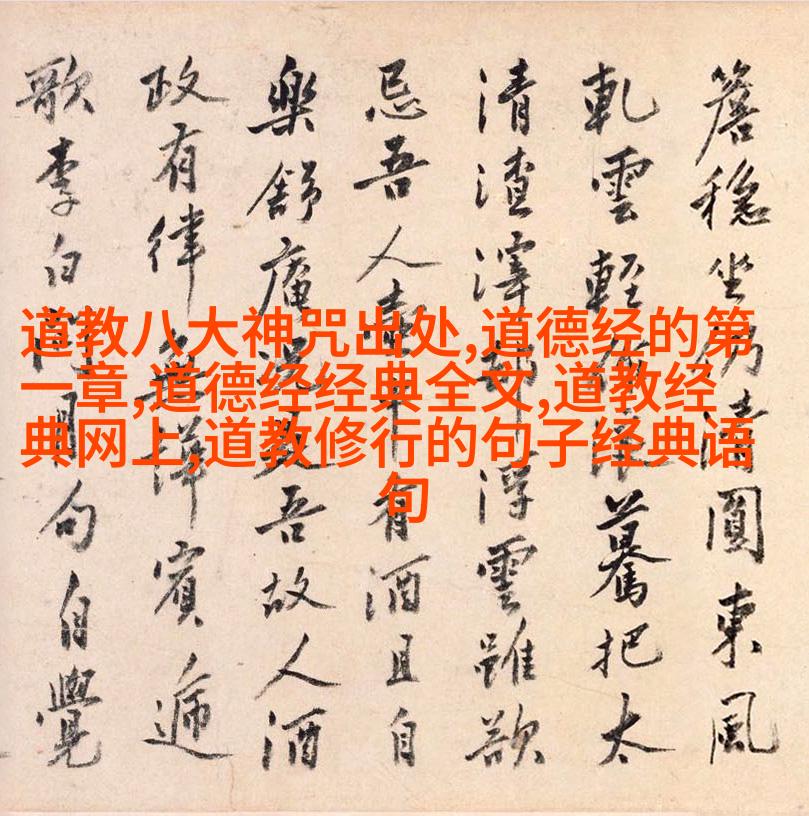 道教八大神咒出处,道德经的第
一章,道德经经典全文,道教经
典网上,道教修行的句子经典语
句
簷穩坐仍清圓東風
軋雲輕驀把太
清渣滓浮雲雖欲
忌吾人有酒且自
樂舒庵吾故人酒
政有律詳賓遞
歌李白問月句自覺